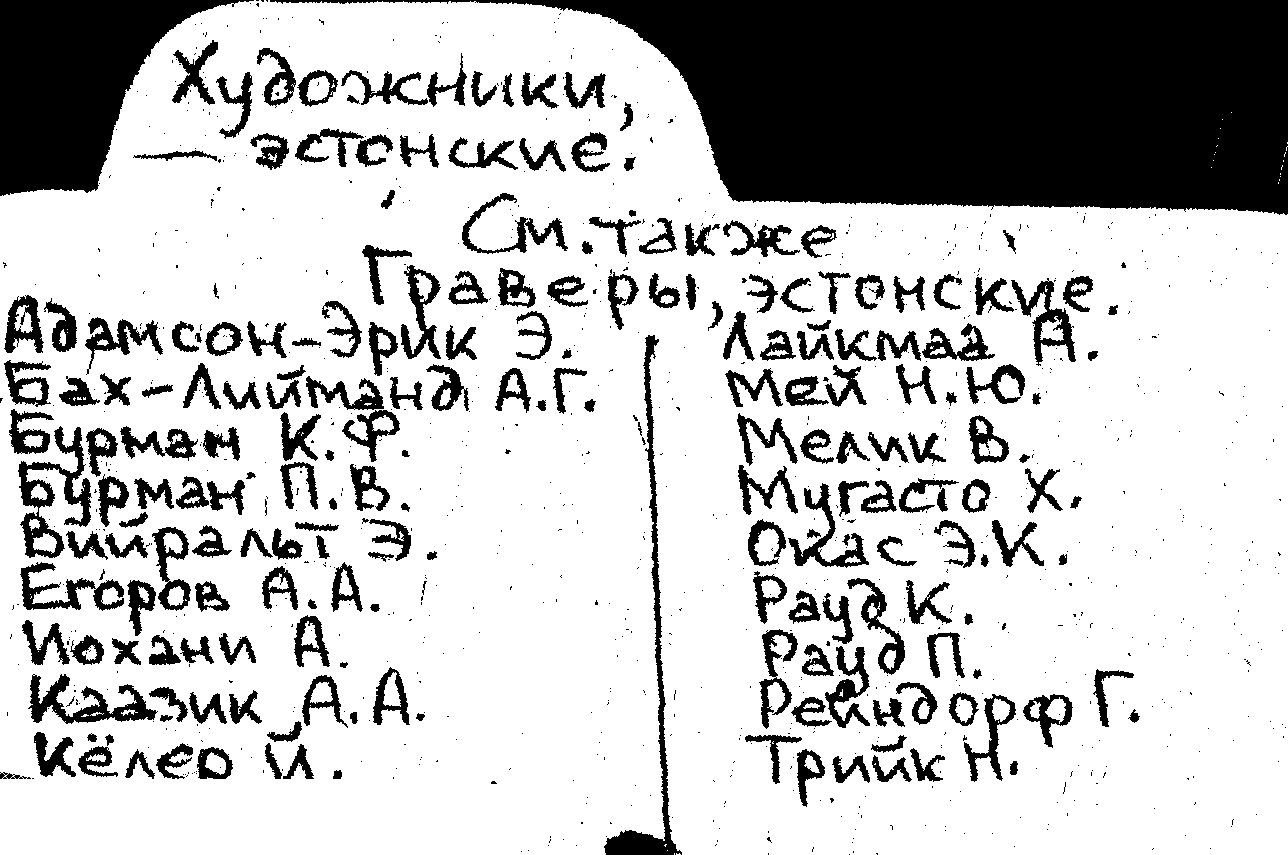 Художники,
— эстонские.
См. также
Граверы, эстонские.
Адамсон-Эрик Э.
Бах-Лийманд А.Г.
Бурман К.Ф.
Бурман П.В.
Вийральт Э.
Егоров А.А.
Иохани А.
Каазик А.А.
Кёлер Й.
Лайкмаа А.
Мей Н.Ю.
Мелик В.
Мугасто Х.
Окас Э.К.
Рауд К.
Рауд П.
Рейндорф Г.
Трийк Н.